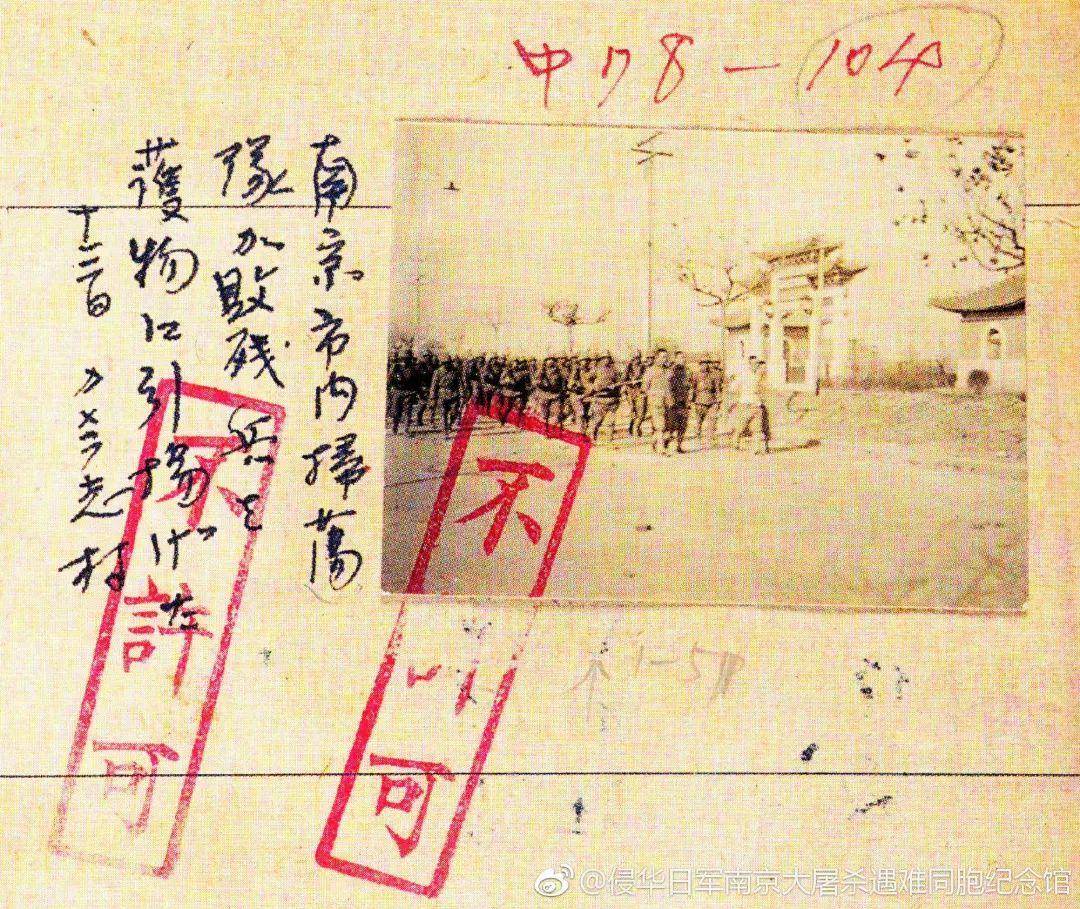 中178-104
南京市内掃蕩
隊が敗残兵と
護物に引揚げた
十二月
志村
不許可
不 可
1-5
@侵华日军南京大屠杀遇难同胞纪念馆